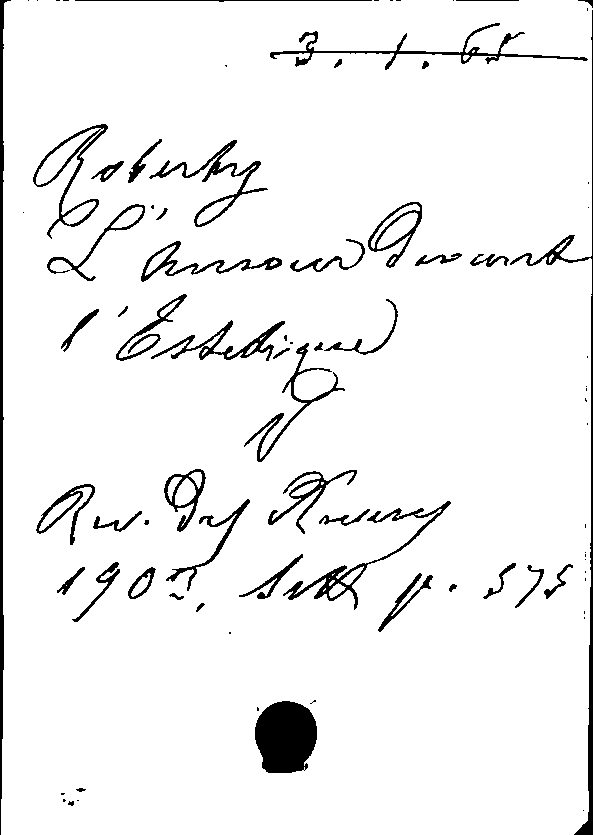 3. 1. 65
Roberty
L'Amour Devant
l'Estetique
V
Rev. Des Revues
1903, Sett p. 575